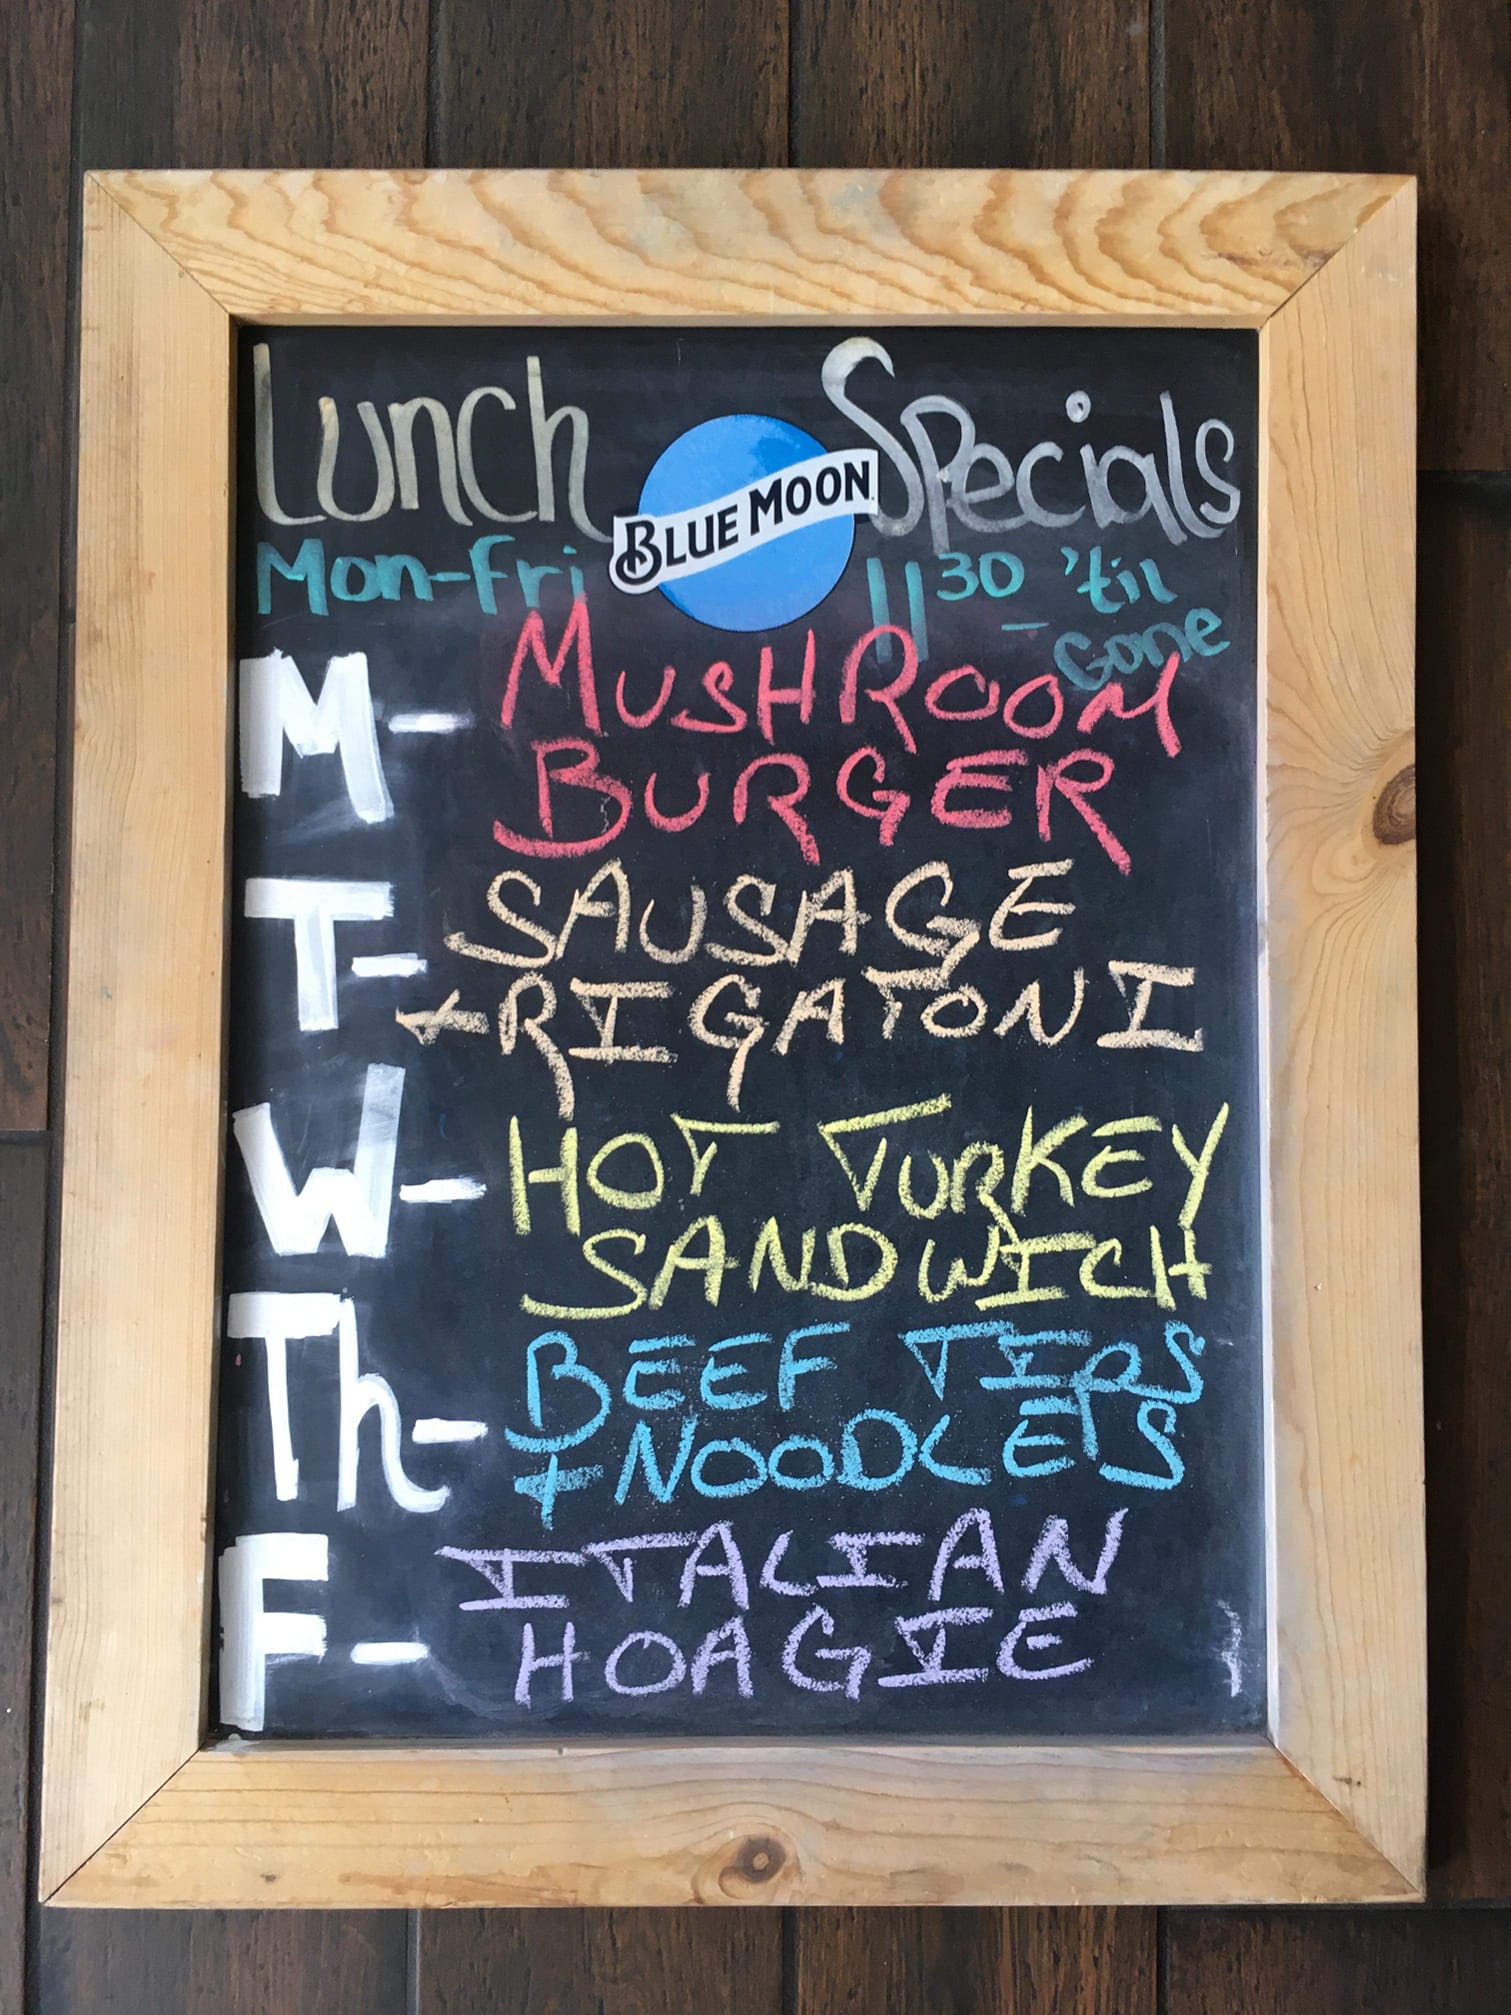 Lunch Specials
BLUE MOON
Mon-Fri 11 30 - 'til Gone
M- MUSHROOM
BURGER
T- SAUSAGE
+ RIGATONI
W- HOT TURKEY
SANDWICH
Th- BEEF TIPS
+ NOODLES
F- ITALIAN
HOAGIE